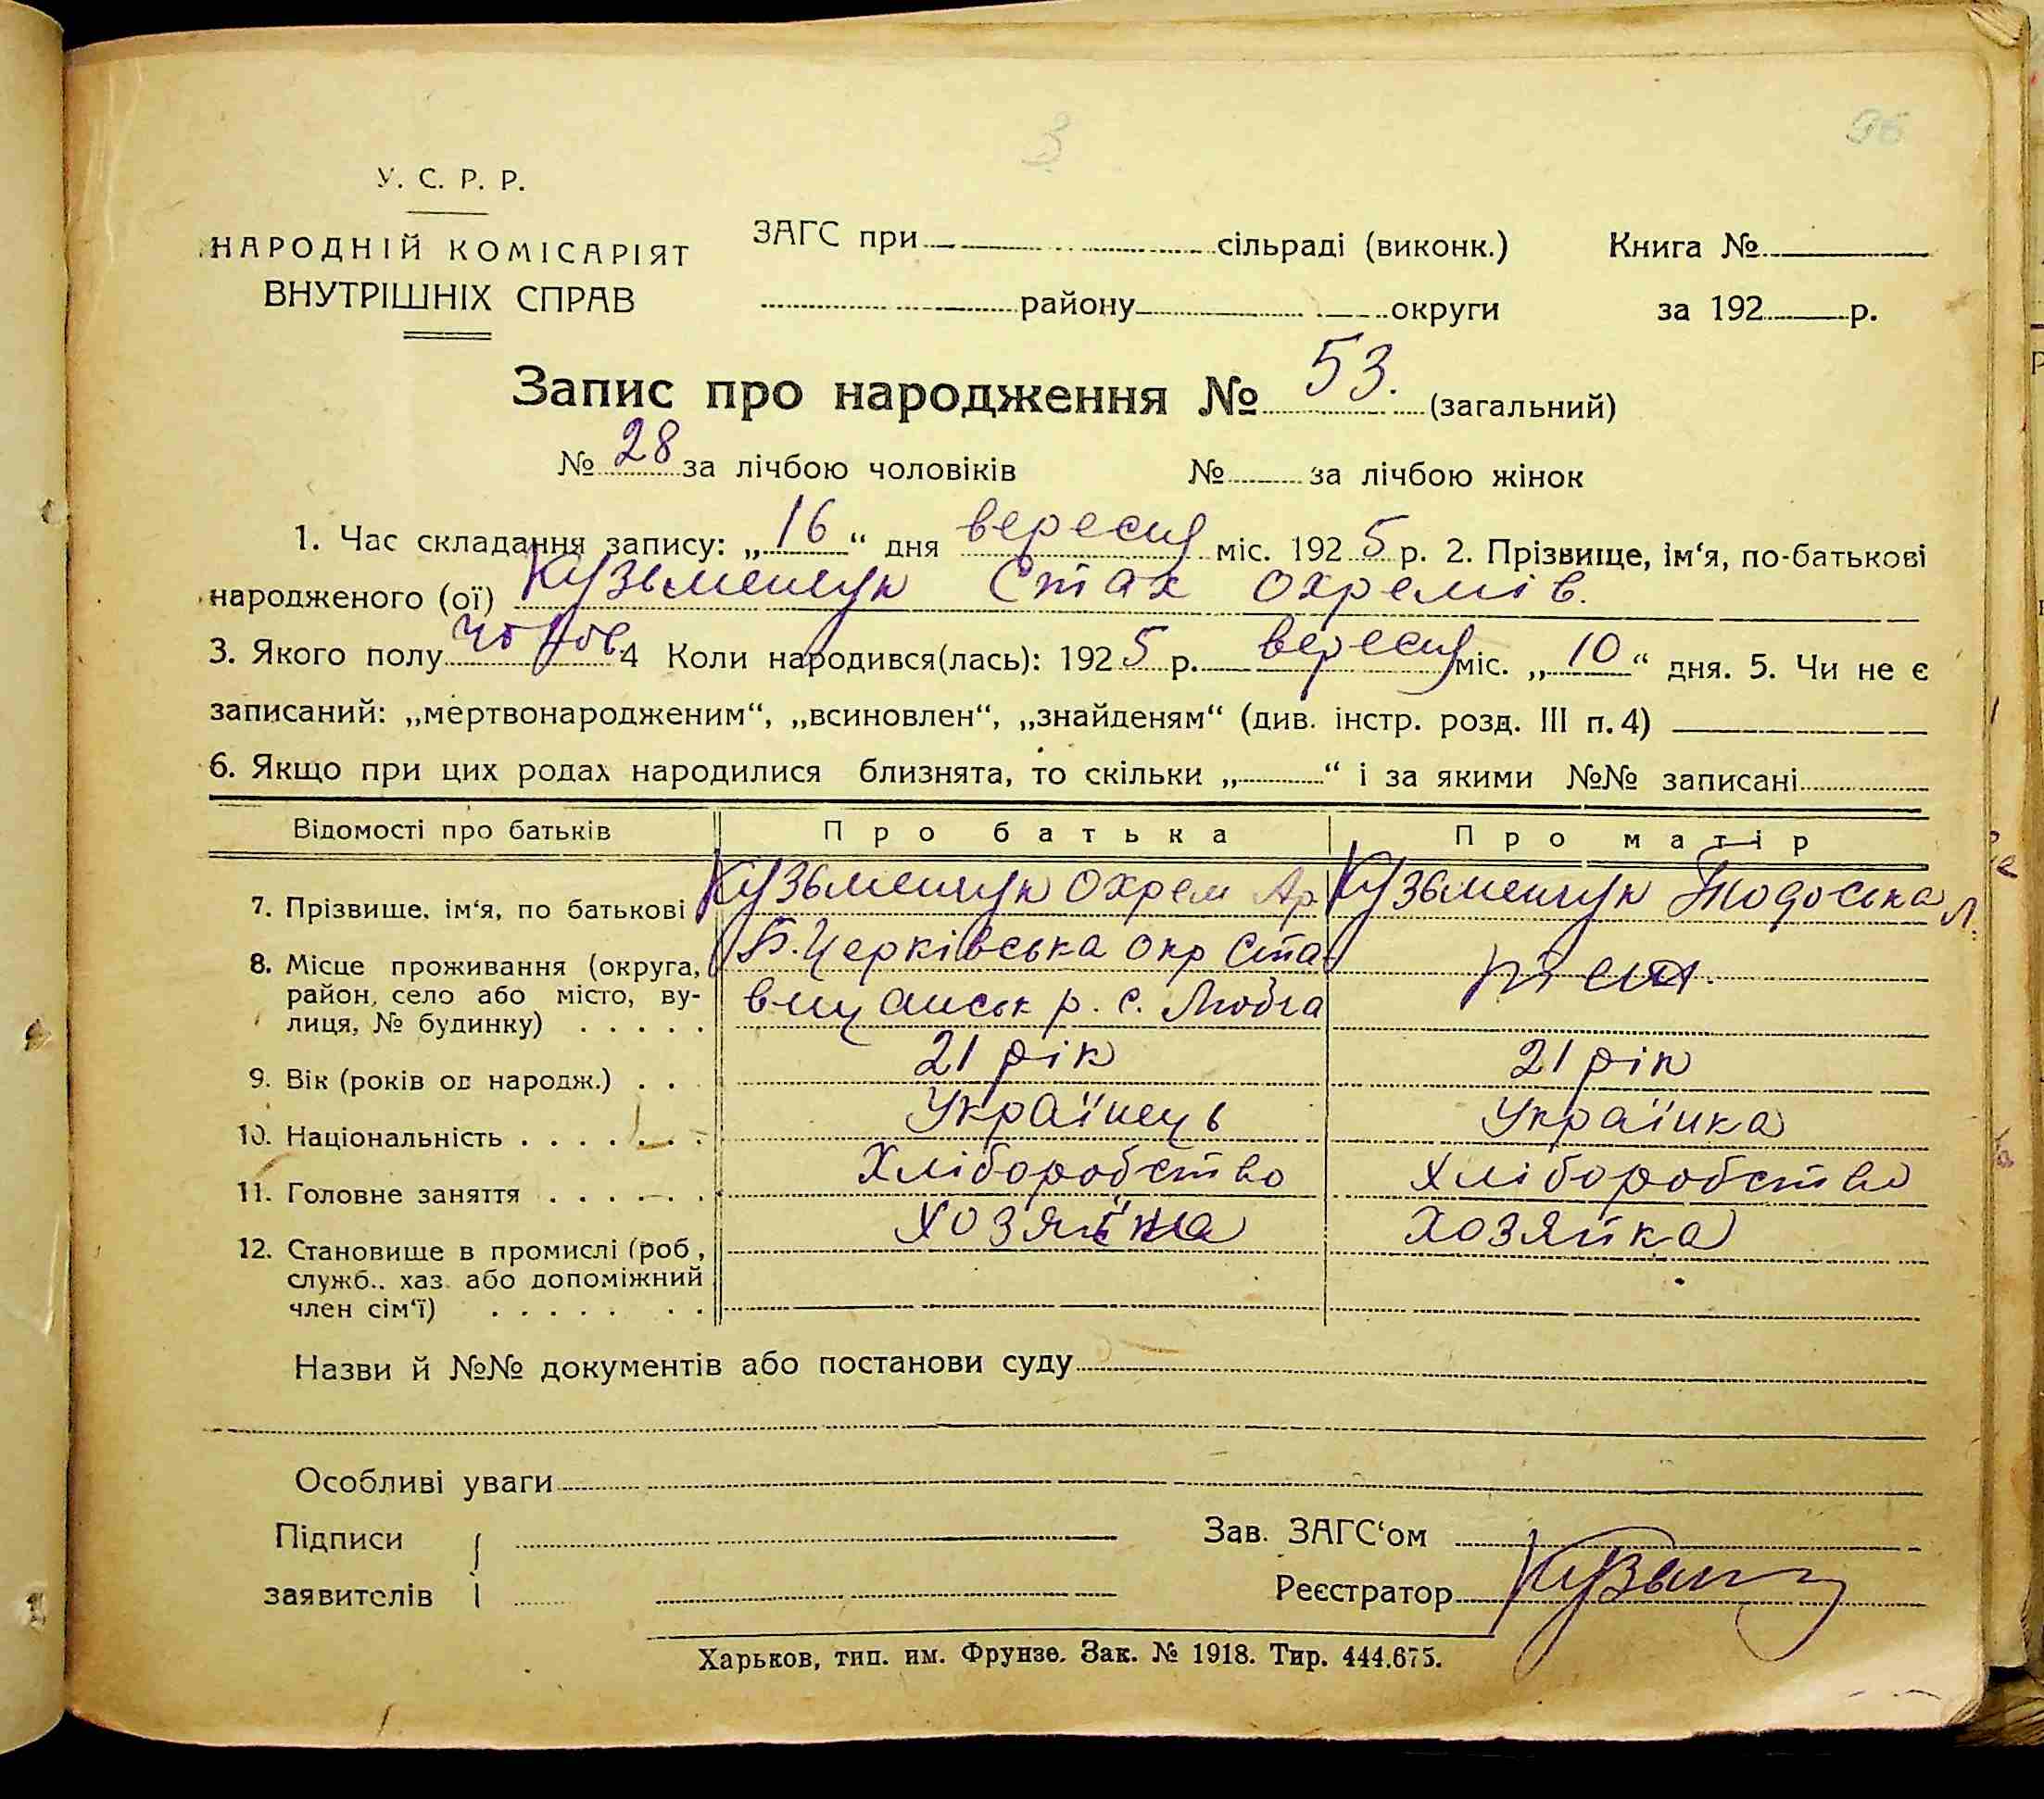 3
96
У. С. Р. Р.
НАРОДНІЙ КОМІСАРІЯТ
ВНУТРІШНІХ СПРАВ
ЗАГС при сільраді (виконк.)
району округи
Книга №
за 192 р.
Запис про народження № 53. (загальний)
№ 28 за лічбою чоловіків № за лічбою жінок
1. Час складання запису: „16“ дня вересня міс. 1925 р. 2. Прізвище, ім‘я, по-батькові
народженого (ої) Кузьменчук Стах Охремів.
3. Якого полу чолов. 4 Коли народився(лась): 1925 р. вересня міс. „10“ дня. 5. Чи не є
записаний: „мертвонародженим“, „всиновлен“, „знайденям“ (див. інстр. розд. III п. 4)
6. Якщо при цих родах народилися близнята, то скільки „ “ і за якими №№ записані
Відомості про батьків Про батька Про матір
7. Прізвище, ім‘я, по батькові Кузьменчук Охрем Ар Кузьменчук Тодоська Л.
8. Місце проживання (округа, Б.Церківська окр Ста
район, село або місто, ву- вищанськ р. с. Люб
лиця, № будинку) . . . . .
9. Вік (років од народж.) . . 21 рік 21 рік
10. Національність . . . . . . . Українець Українка
11. Головне заняття . . . . . . Хліборобство Хліборобство
12. Становище в промислі (роб., Хозяїна Хозяйка
служб., хаз. або допоміжний
член сім‘ї) . . . . . . .
Назви й №№ документів або постанови суду
Особливі уваги
Підписи
заявителів
Зав. ЗАГС‘ом
Реєстратор
Харьков, тип. им. Фрунзе. Зак. № 1918. Тир. 444.675.